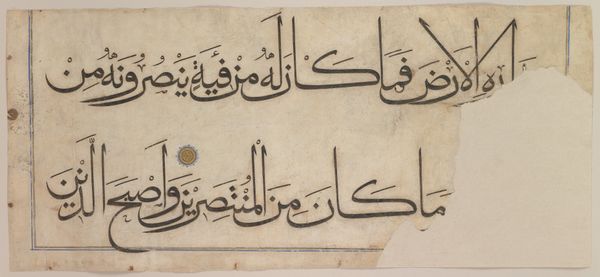 اره الْأَرْضَ فَمَا كَانَ لَهُ مِنْ فِئَةٍ يَنْصُرُونَهُ مِنْ
مَا كَانَ مِنَ الْمُنْتَصِرِينَ وَأَصْبَحَ الَّذِينَ